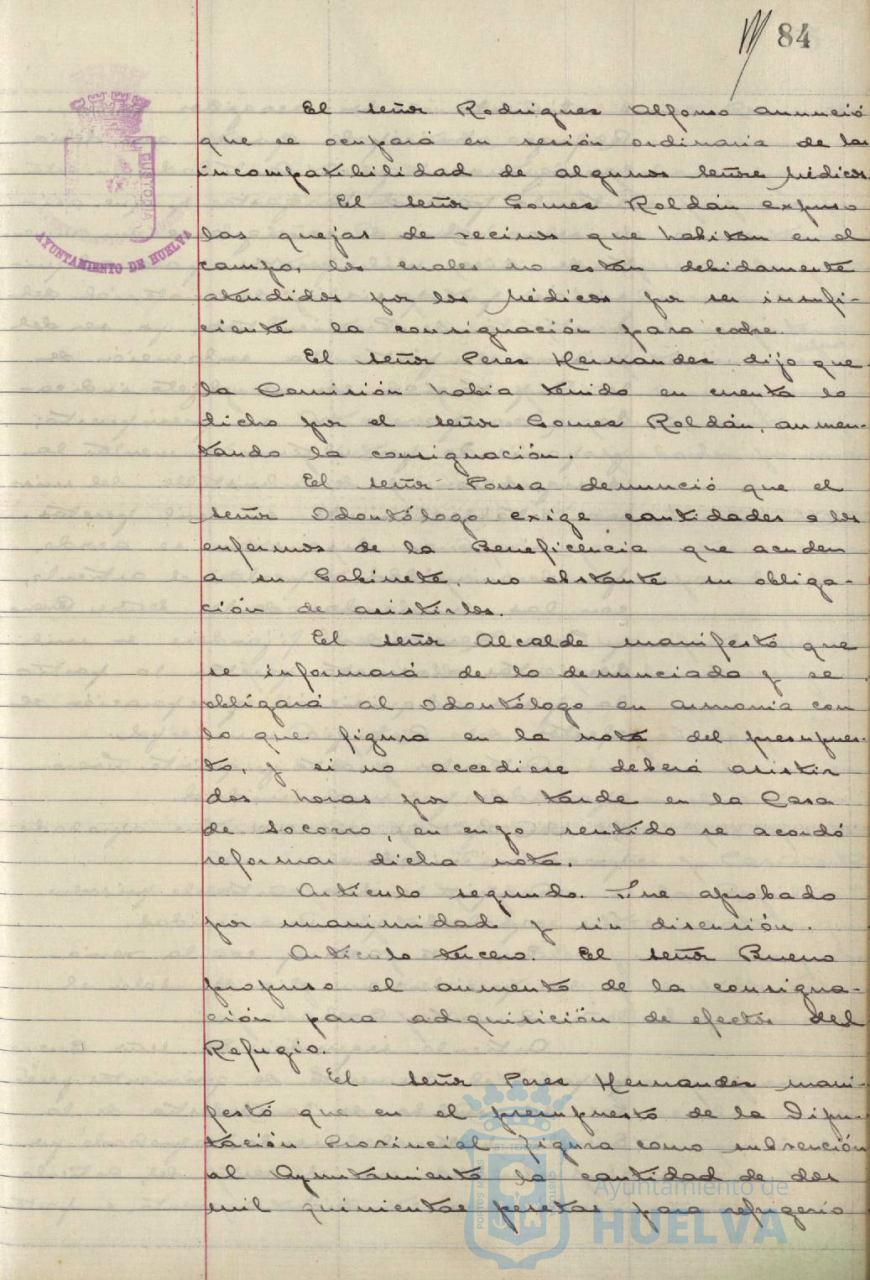 84
El señor Rodrigues Alfonso anunció
que se ocupará en sesión ordinaria de las
incompatibilidad de algunos señores Médicos
El señor Gomes Roldán expuso
las quejas de vecinos que habitan en el
campo, los cuales no están debidamente
atendidos por los Médicos por ser insufi-
ciente la consignación para coche.
El señor Peres Hernandes dijo que
la Comisión habia tenido en cuenta lo
dicho por el señor Gomes Roldán, aumen-
tando la consignación.
El señor Ponsa denunció que el
señor Odontólogo exige cantidades a los
enfermos de la Beneficencia que acuden
a su Gabinete, no obstante su obliga-
ción de asistirlos.
El señor Alcalde manifestó que
se informará de lo denunciado y se
obligará al Odontólogo en armonia con
lo que figura en la nota del presupues-
to, y si no accediese deberá asistir
dos horas por la tarde en la Casa
de Socorro, en cuyo sentido se acordó
reformar dicha nota.
Artículo segundo. Fue aprobado
por unanimidad y sin discusión.
Artículo tercero. El señor Bueno
propuso el aumento de la consigna-
ción para adquisición de efectos del
Refugio.
El señor Peres Hernandes mani-
festó que en el presupuesto de la Dipu-
tación Provincial figura como subvención
al Ayuntamiento la cantidad de dos
mil quinientas pesetas para refrigerio
AYUNTAMIENTO DE HUELVA
Ayuntamiento de
HUELVA